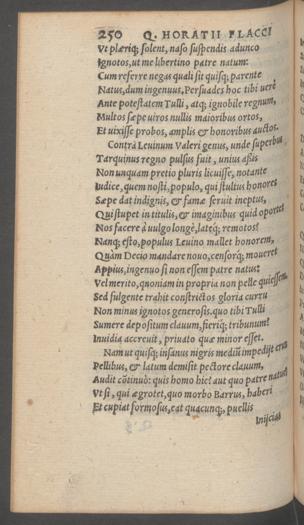 250 Q. HORATII FLACCI
Vt plæriq; solent, naso suspendis adunco
Ignotos, ut me libertino patre natum:
Cum referre negas quali sit quisq; parente
Natus, dum ingenuus, Persuades hoc tibi uerè
Ante potestatem Tulli, atq; ignobile regnum,
Multos sæpe uiros nullis maioribus ortos,
Et uixisse probos, amplis & honoribus auctos.
Contrà Leuinum Valeri genus, unde superbus
Tarquinus regno pulsus fuit, unius aßis
Non unquam pretio pluris licuisse, notante
Iudice, quem nosti, populo, qui stultus honores
Sæpe dat indignis, & famæ seruit ineptus,
Qui stupet in titulis, & imaginibus quid oportet
Nos facere à uulgo longè, lateq; remotos?
Nanq; esto, populus Leuino mallet honorem,
Quàm Decio mandare nouo, censorq; moueret
Appius, ingenuo si non essem patre natus:
Vel merito, quoniam in propria non pelle quiessem.
Sed fulgente trahit constrictos gloria curru
Non minus ignotos generosis. quo tibi Tulli
Sumere depositum clauum, fieriq; tribunum?
Inuidia accreuit, priuato quæ minor esset.
Nam ut quisq; insanus nigris mediū impedijt crus
Pellibus, & latum demisit pectore clauum,
Audit cōtinuò: quis homo hic? aut quo patre natus?
Vt si, qui ægrotet, quo morbo Barrus, haberi
Et cupiat formosus, eat quacunq;, puellis
Inijciat